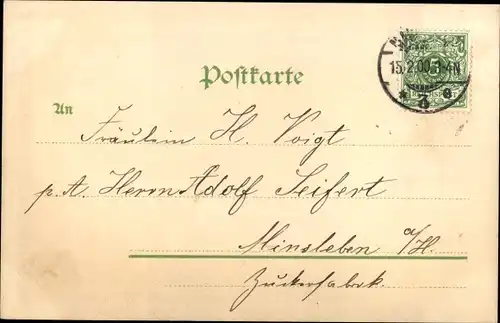 15.2.00.3-4N
* 3 e
Postkarte
An
Fräulein H. Voigt
p. A. Herrn Adolf Seifert
Minsleben a/H.
Zuckerfabrik.